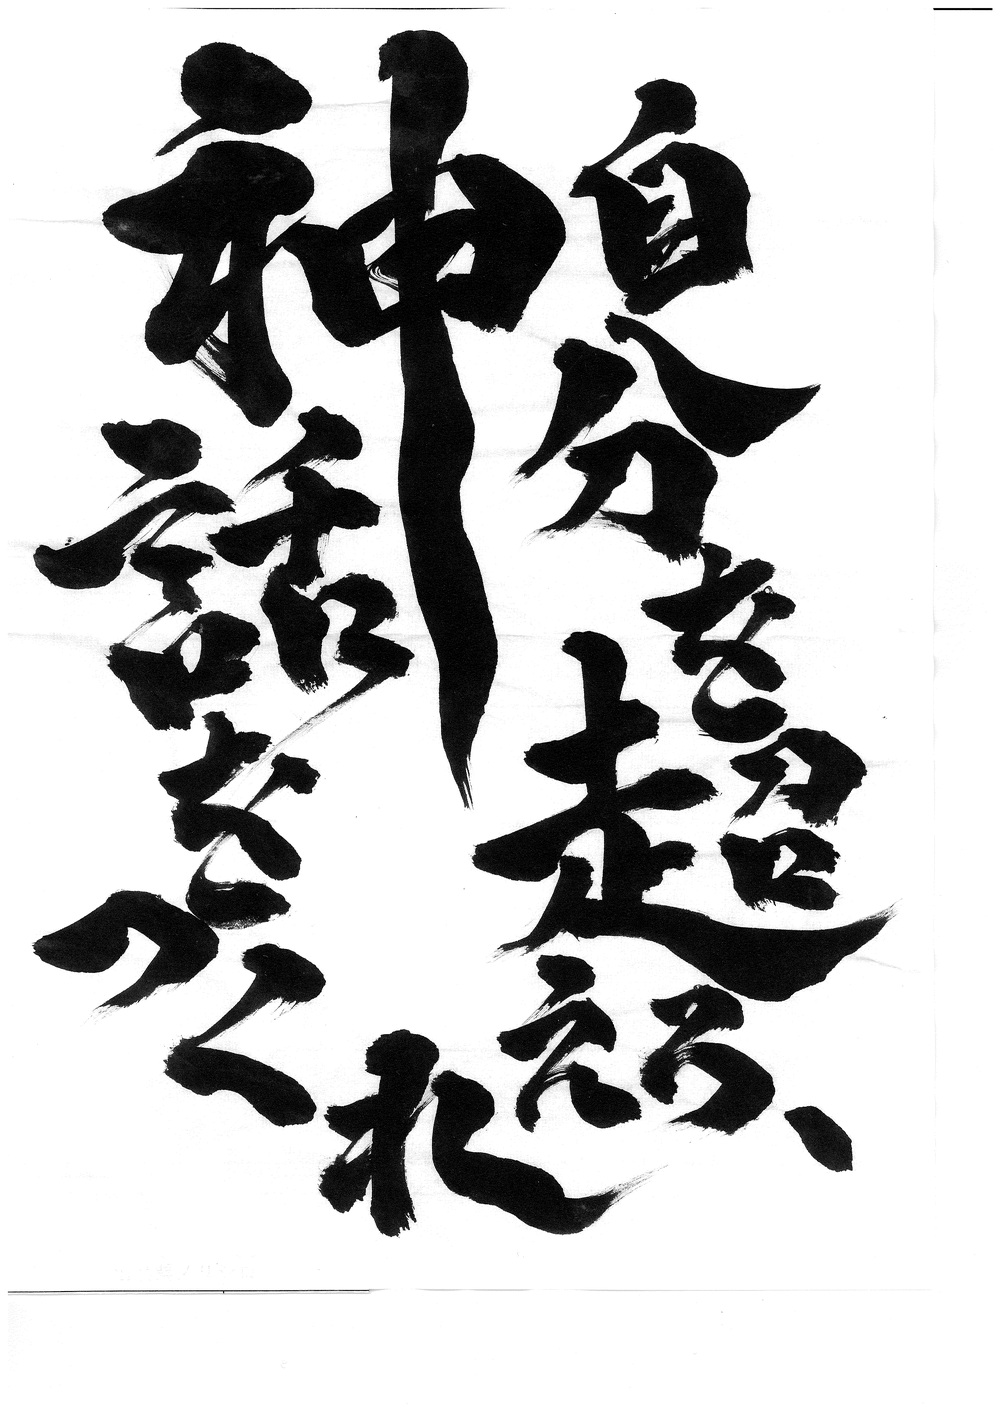 自分を超えろ、
神話をつくれ